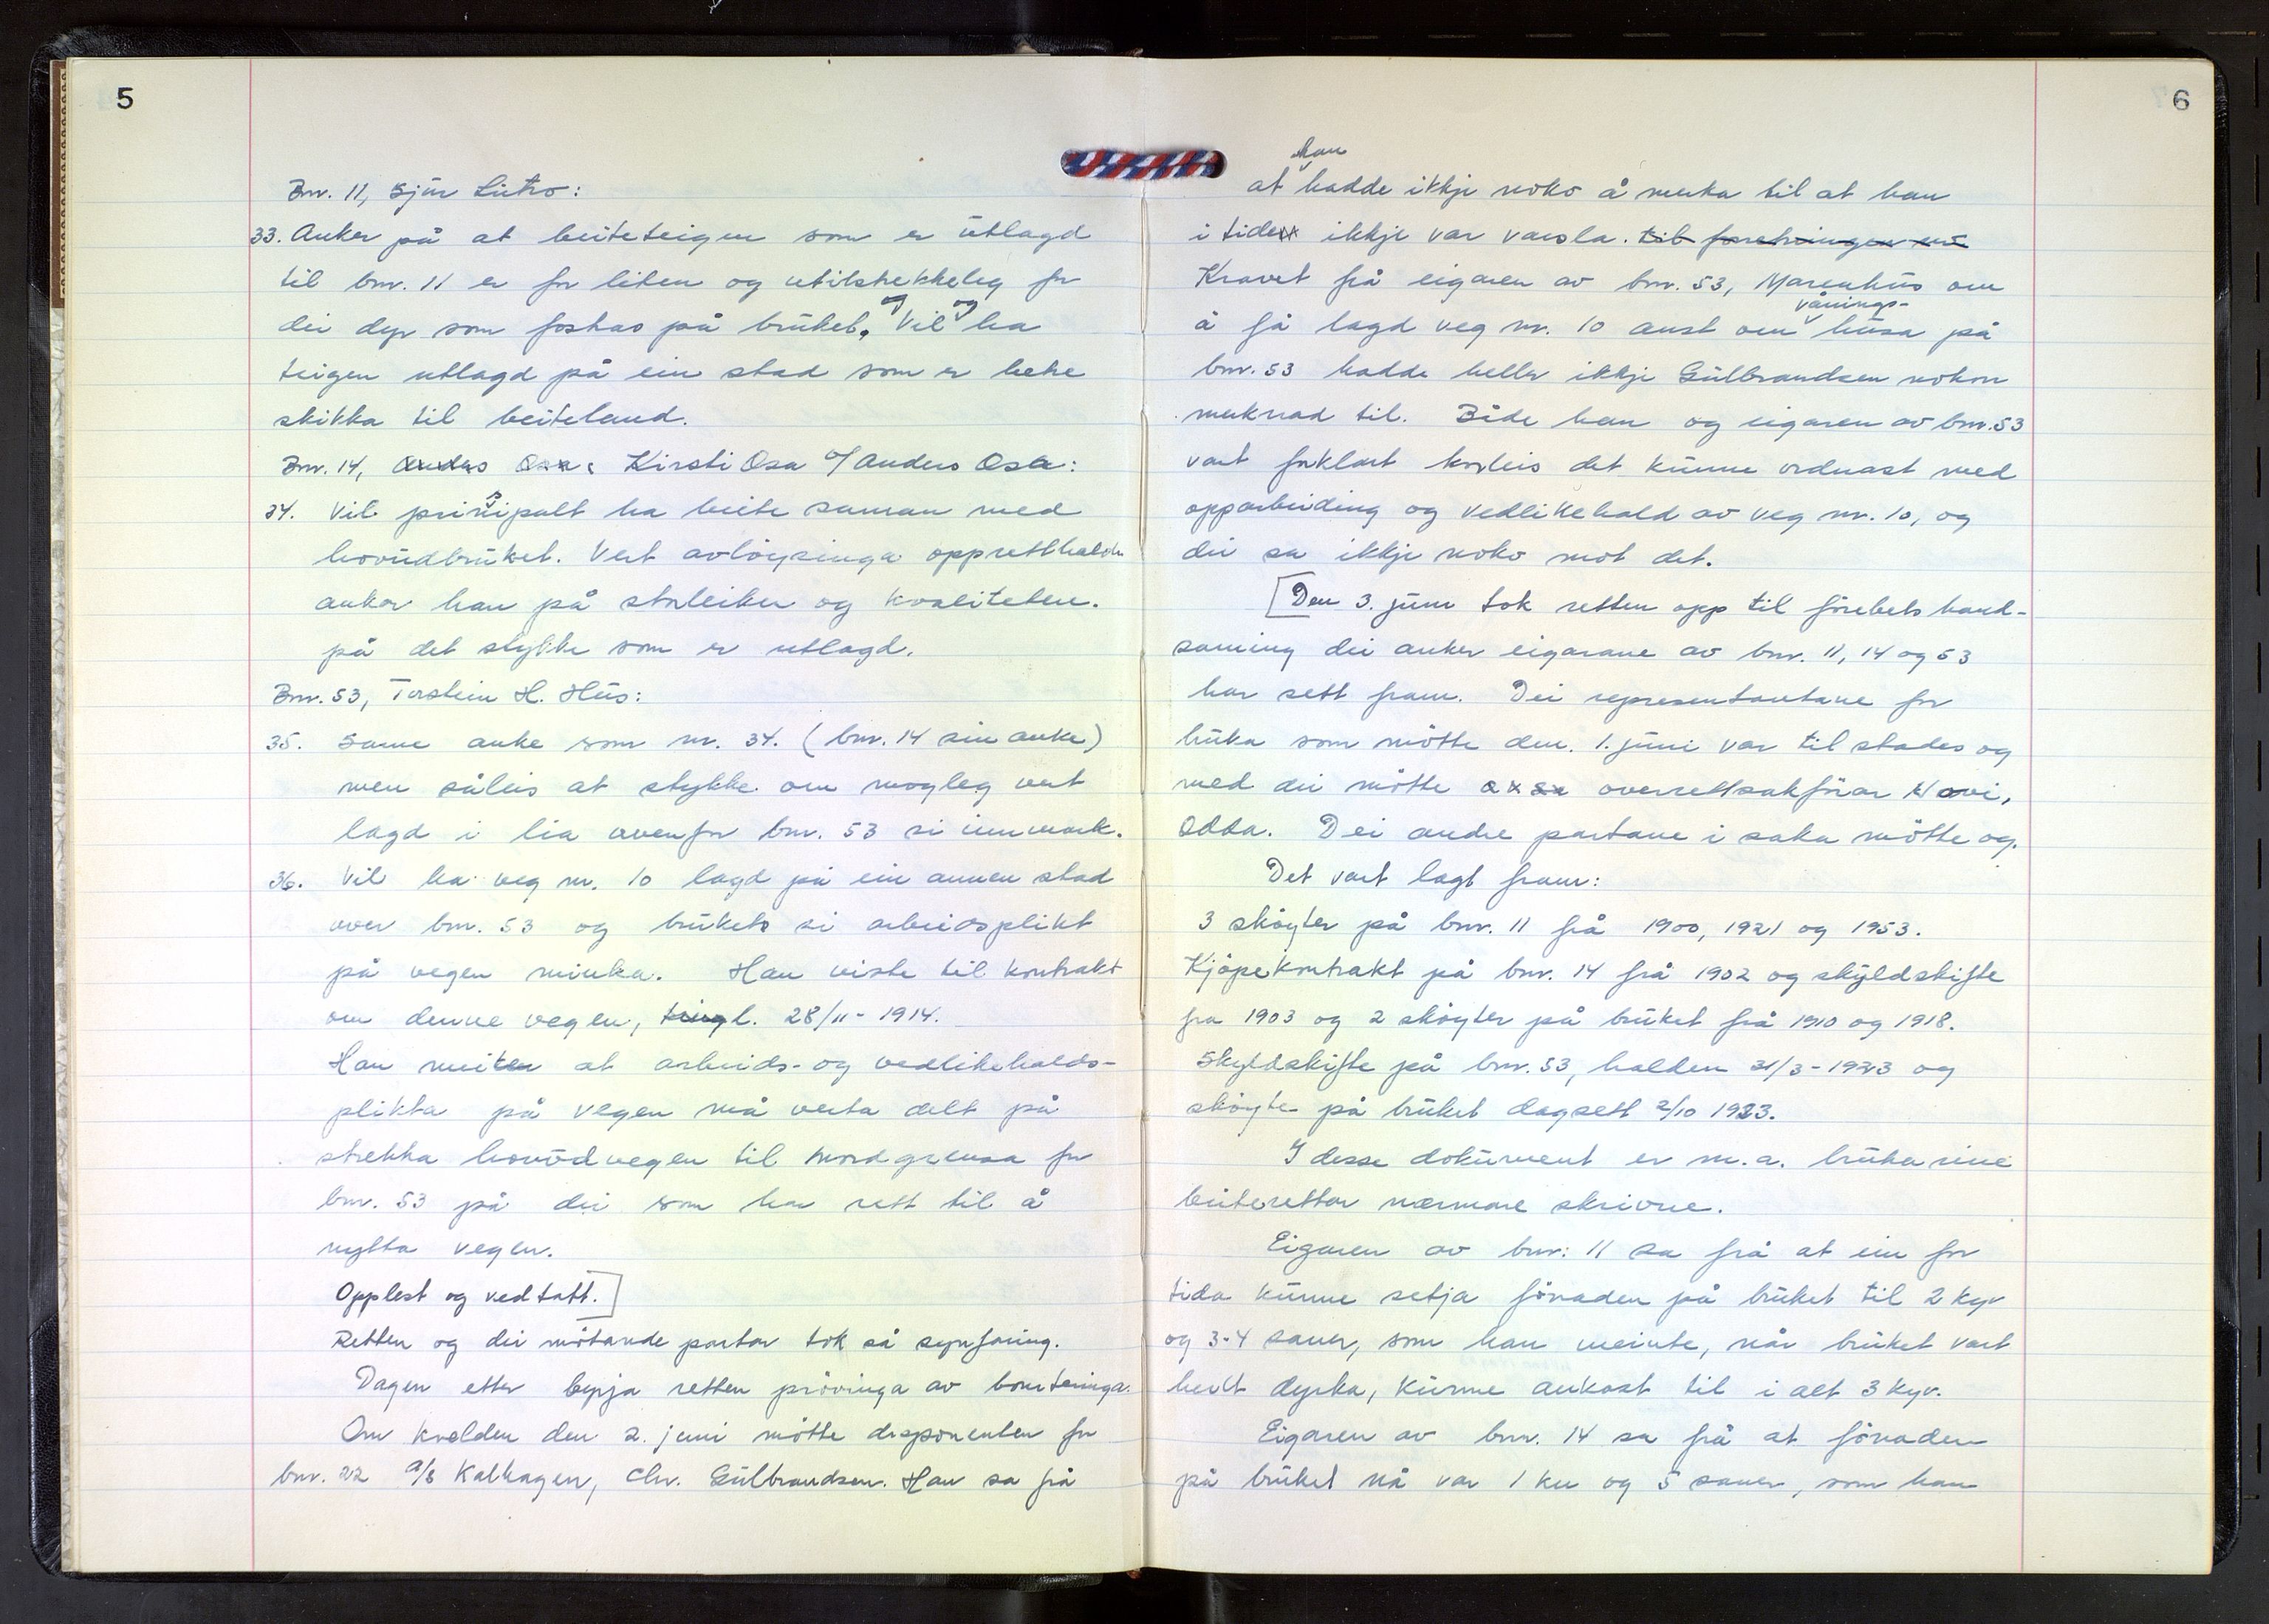 5
Bnr. 11, Sjur Lutro:
33. Anker på at beiteteigen som er utlagd
til bnr. 11 er for liten og utilstrekkeleg for
dei dyr som fostras på bruket, og Vil og ha
teigen utlagd på ein stad som er betre
skikka til beiteland.
Bnr. 14, Anders Osa, Kirsti Osa v/ Anders Osa:
34. Vil prinsipalt ha beite saman med
hovudbruket. Vert avløysinga oppretthalden
anker han på storleiken og kvaliteten
på det stykke som er utlagd.
Bnr. 53, Torstein H. Hus:
35. Same anke som nr. 34. (bnr. 14 sin anke)
men såleis at stykke om mogleg vert
lagd i lia ovenfor bnr. 53 si innmark.
36. Vil ha veg nr. 10 lagd på ein annen stad
over bnr. 53 og brukets si arbeidsplikt
på vegen minka. Han viste til kontrakt
om denne vegen, tingl. 28/11-1914.
Han meiter at arbeids- og vedlikehalds-
plikta på vegen må verta delt på
strekka hovudvegen til nordgrensa for
bnr. 53 på dei som har rett til å
nytta vegen.
Opplest og vedtatt.]
Retten og dei møtande partar tok så synfaring.
Dagen etter byrja retten prøvinga av boniteringa.
Om kvelden den 2. juni møtte disponenten for
bnr. 22 A/S Kalhagen, Chr. Gulbrandsen. Han sa frå
6
at han hadde ikkje noko å merka til at han
i tide ikkje var varsla. til forretningen
Kravet frå eigaren av bnr. 53, Marenhus om
å få lagd veg nr. 10 aust om vånings- husa på
bnr. 53 hadde heller ikkje Gulbrandsen nokon
merknad til. Både han og eigaren av bnr. 53
vart forklart korleis det kunne ordnast med
opparbeiding og vedlikehald av veg nr. 10, og
dei sa ikkje noko mot det.
[Den 3. juni tok retten opp til førebels hand-
saming dei anker eigarane av bnr. 11, 14 og 53
har sett fram. Dei representantane for
bruka som møtte den. 1. juni var til stades og
med dei møtte overrettsakførar Navi,
Odda. Dei andre partane i saka møtte og.
Det vart lagt fram:
3 skøyter på bnr. 11 frå 1900, 1921 og 1953.
Kjøpekontrakt på bnr. 14 frå 1902 og skyldskifte
fra 1903 og 2 skøyter på bruket frå 1910 og 1918.
Skyldskifte på bnr. 53, halden 31/3-1923 og
skøyte på bruket dagsett 2/10 1923.
I desse dokument er m.a. bruka sine
beiterettar nærmare skrivne.
Eigaren av bnr. 11 sa frå at ein for
tida kunne setja fònaden på bruket til 2 kyr
og 3-4 sauer, som han meinte, når bruket vart
heilt dyrka, kunne aukast til i alt 3 kyr.
Eigaren av bnr. 14 sa frå at fònaden
på bruket nå var 1 ku og 5 sauer, som han